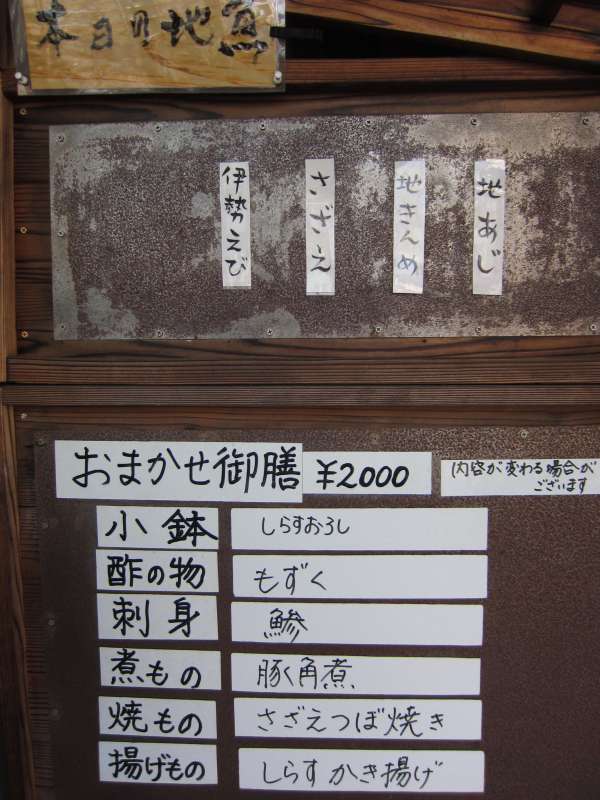 本日の地魚
地あじ
地きんめ
さざえ
伊勢えび
おまかせ御膳 ¥2000
内容が変わる場合が
ございます
小鉢 しらすおろし
酢の物 もずく
刺身 鯵
煮もの 豚角煮
焼もの さざえつぼ焼き
揚げもの しらすかき揚げ